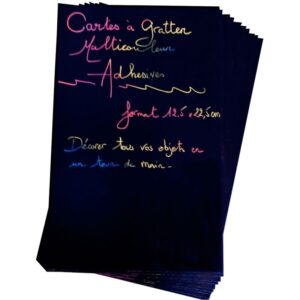 Cartes à Gratter
Multicouleur
Adhésives
format 12,5 x 22,5 cm
Décorer tous vos objets en
un tour de main.